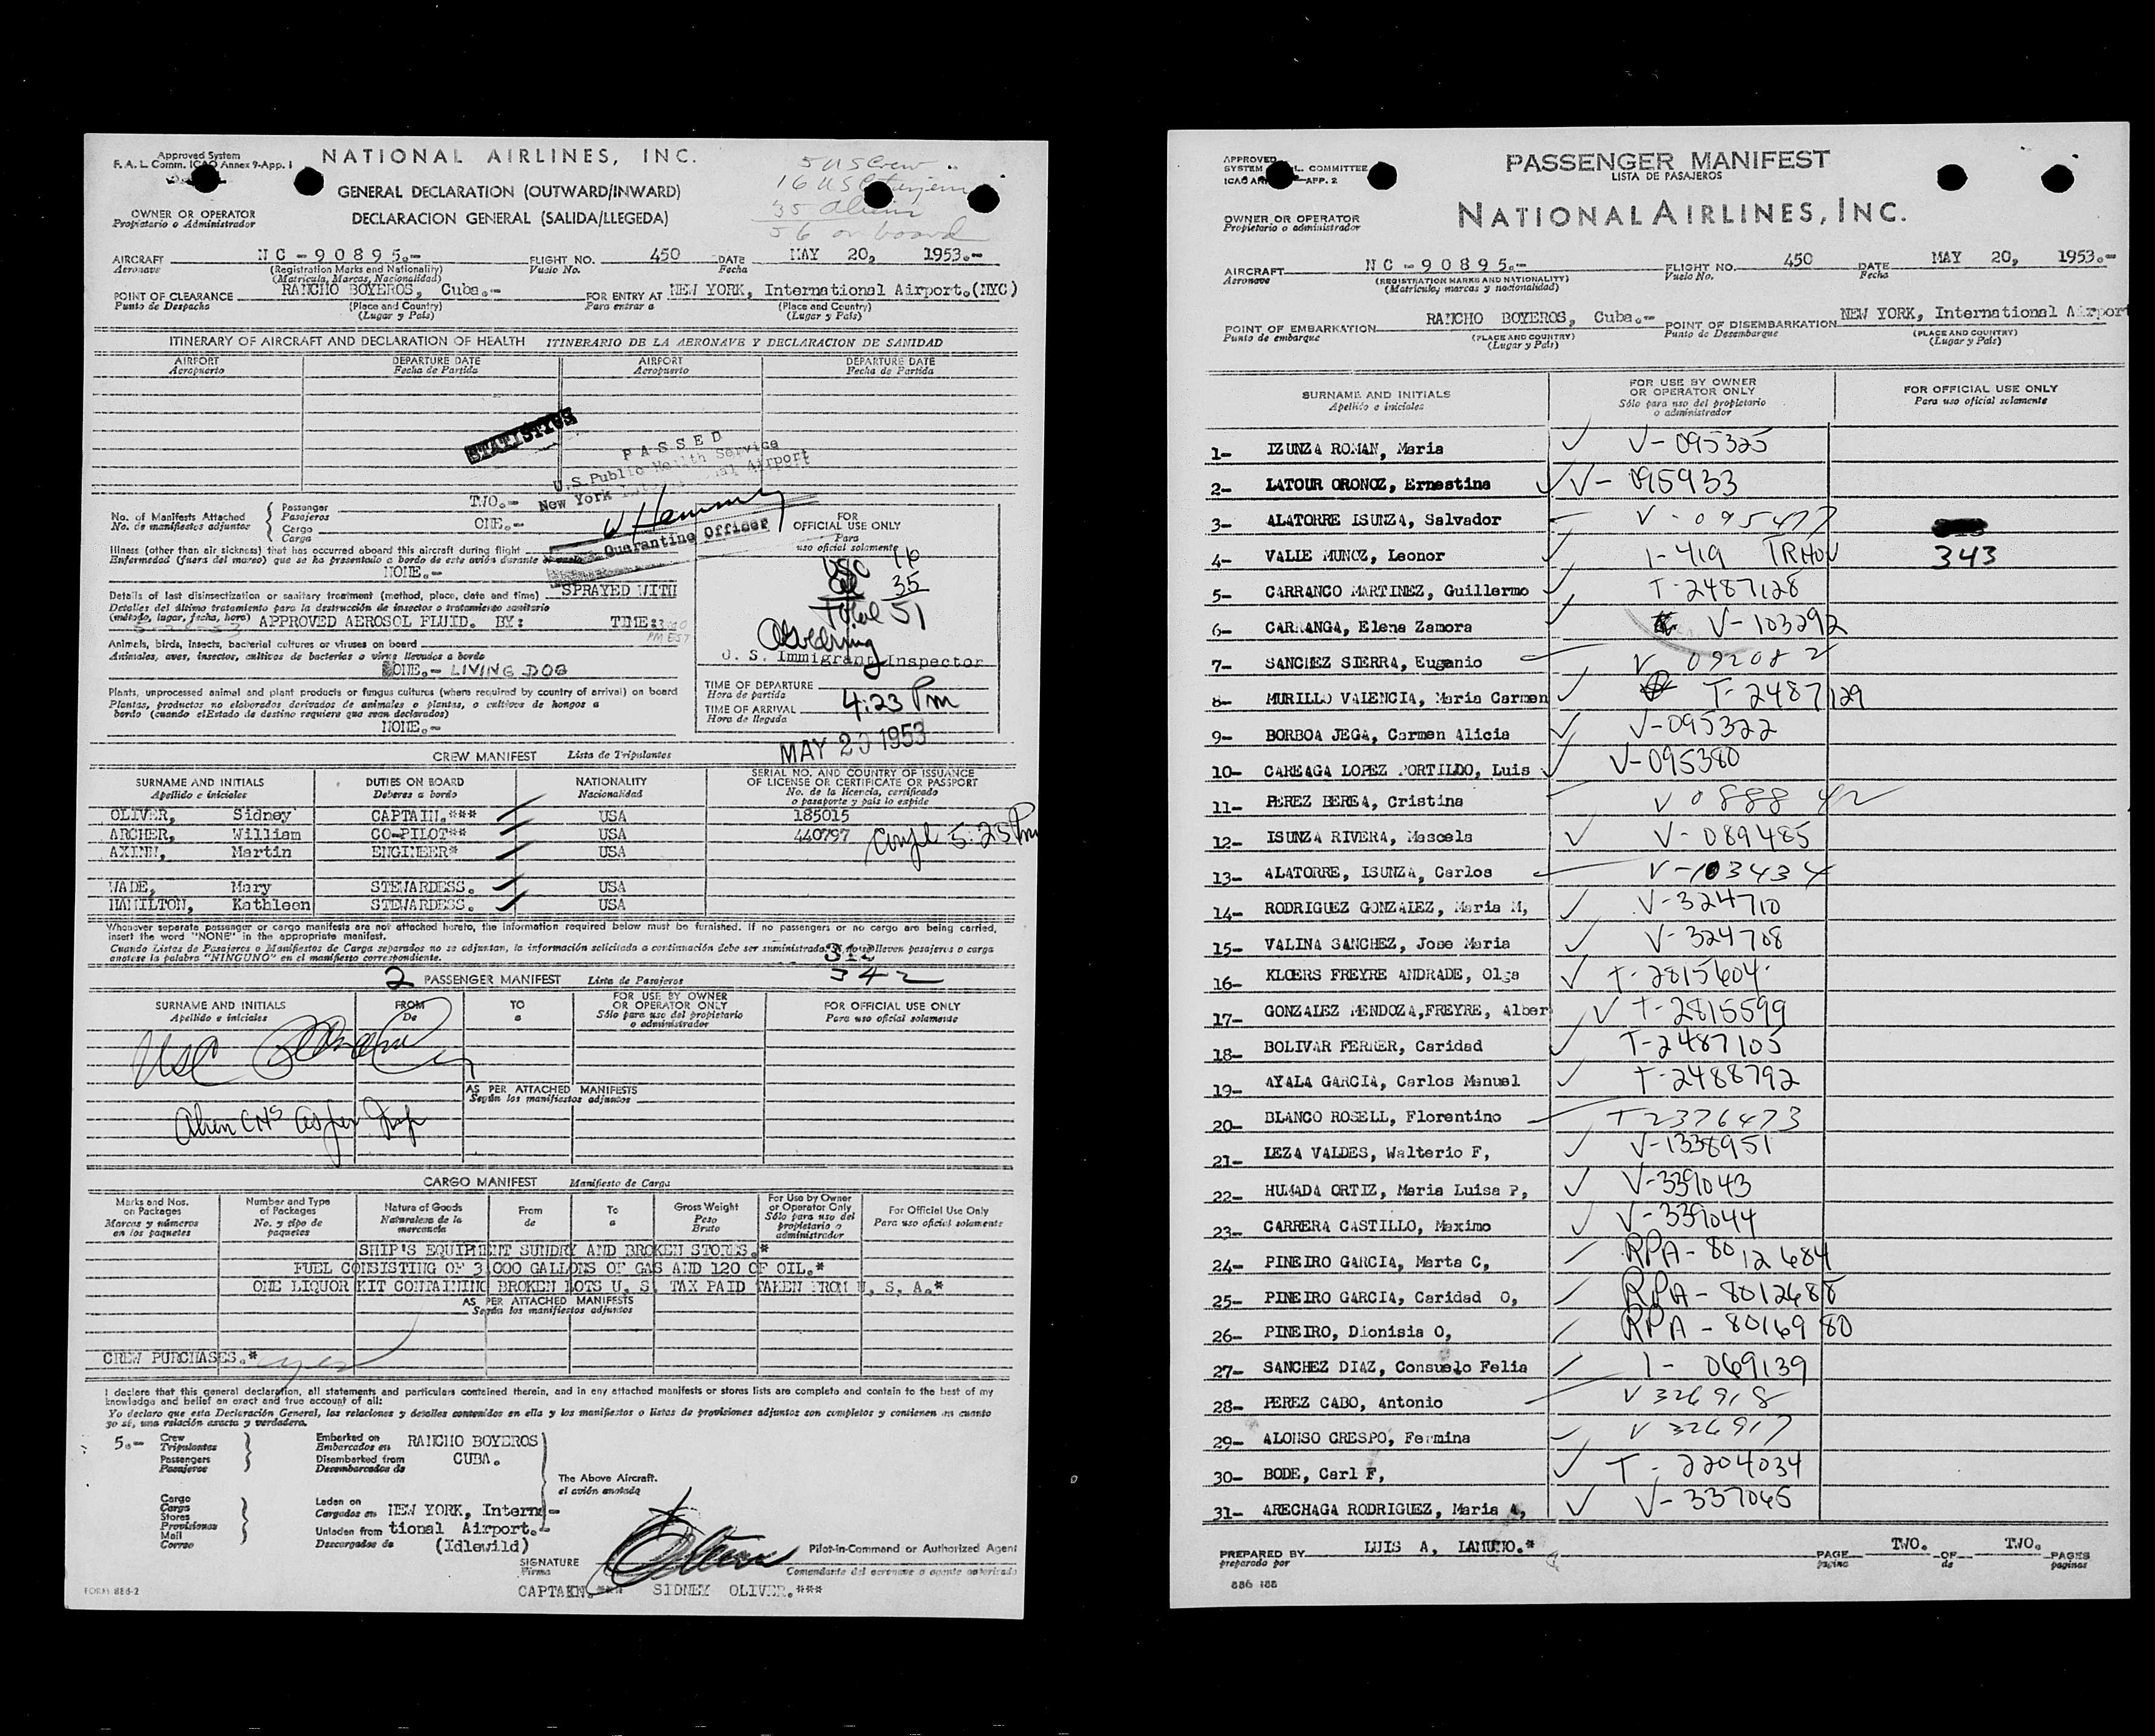 Approved System
F. A. L. Comm. ICAO Annex 9-App. 1
NATIONAL AIRLINES, INC.
5 US Crew
16 US Citizens
35 alien
56 on board
GENERAL DECLARATION (OUTWARD/INWARD)
DECLARACION GENERAL (SALIDA/LLEGEDA)
OWNER OR OPERATOR
Propietario o Administrador
AIRCRAFT NC-90895.- FLIGHT NO. 450 DATE MAY 20, 1953.-
Aeronave (Registration Marks and Nationality) Vuelo No. Fecha
(Matricula, Marcas, Nacionalidad)
POINT OF CLEARANCE RANCHO BOYEROS, Cuba.- FOR ENTRY AT NEW YORK, International Airport.(NYC)
Punto de Despacho (Place and Country) Para entrar a (Place and Country)
(Lugar y País) (Lugar y País)
ITINERARY OF AIRCRAFT AND DECLARATION OF HEALTH ITINERARIO DE LA AERONAVE Y DECLARACION DE SANIDAD
AIRPORT DEPARTURE DATE AIRPORT DEPARTURE DATE
Aeropuerto Fecha de Partida Aeropuerto Fecha de Partida
STATISTICS
PASSED
U.S. Public Health Service
New York International Airport
Quarantine Officer
No. of Manifests Attached Passenger TWO.-
No. de manifiestos adjuntos Pasajeros
Cargo ONE.-
Carga
Illness (other than air sickness) that has occurred aboard this aircraft during flight
Enfermedad (fuera del mareo) que se ha presentado a bordo de este avión durante el vuelo
NONE.-
Details of last disinsectization or sanitary treatment (method, place, date and time) SPRAYED WITH
Detalles del último tratamiento para la destrucción de insectos o tratamiento sanitario
(método, lugar, fecha, hora) APPROVED AEROSOL FLUID. BY: TIME:
PM EST
Animals, birds, insects, bacterial cultures or viruses on board
Animales, aves, insectos, cultivos de bacterias o virus llevados a bordo
NONE.- LIVING DOG
Plants, unprocessed animal and plant products or fungus cultures (where required by country of arrival) on board
Plantas, productos no elaborados derivados de animales o plantas, o cultivos de hongos a
bordo (cuando elEstado de destino requiere que sean declarados)
NONE.-
FOR
OFFICIAL USE ONLY
Para
uso oficial solamente
USC 16
35
Total 51
U. S. Immigrant Inspector
TIME OF DEPARTURE
Hora de partida
4:23 Pm
TIME OF ARRIVAL
Hora de llegada
MAY 20 1953
CREW MANIFEST Lista de Tripulantes
SURNAME AND INITIALS DUTIES ON BOARD NATIONALITY SERIAL NO. AND COUNTRY OF ISSUANCE
OF LICENSE OR CERTIFICATE OR PASSPORT
Apellido e iniciales Deberes a bordo Nacionalidad No. de la licencia, certificado
o pasaporte y país lo expide
OLIVER, Sidney CAPTAIN.*** USA 185015
ARCHER, William CO-PILOT** USA 440797
5:25 Pm
AXINN, Martin ENGINEER* USA
WADE, Mary STEWARDESS. USA
HAMILTON, Kathleen STEWARDESS. USA
Whenever separate passenger or cargo manifests are not attached hereto, the information required below must be furnished. If no passengers or no cargo are being carried,
insert the word "NONE" in the appropriate manifest.
Cuando Listas de Pasajeros o Manifiestos de Carga separados no se adjuntan, la información solicitada a continuación debe ser suministrada. Si no se lleven pasajeros o carga
anotese la palabra "NINGUNO" en el manifiesto correspondiente.
342
2 PASSENGER MANIFEST Lista de Pasajeros
SURNAME AND INITIALS FROM TO FOR USE BY OWNER
OR OPERATOR ONLY FOR OFFICIAL USE ONLY
Apellido e iniciales De a Sólo para uso del propietario
o administrador Para uso oficial solamente
USC
AS PER ATTACHED MANIFESTS
Según los manifiestos adjuntos
Alien
CARGO MANIFEST Manifiesto de Carga
Marks and Nos.
on Packages
Marcas y números
en los paquetes
Number and Type
of Packages
No. y tipo de
paquetes
Nature of Goods
Naturaleza de la
mercancia
From
de
To
a
Gross Weight
Peso
Bruto
For Use by Owner
or Operator Only
Sólo para uso del
propietario o
administrador
For Official Use Only
Para uso oficial solamente
SHIP'S EQUIPMENT SUNDRY AND BROKEN STORES.*
FUEL CONSISTING OF 3,000 GALLONS OF GAS AND 120 OF OIL.*
ONE LIQUOR KIT CONTAINING BROKEN LOTS U. S. TAX PAID TAKEN FROM U. S. A.*
AS PER ATTACHED MANIFESTS
Según los manifiestos adjuntos
CREW PURCHASES.* yes
I declare that this general declaration, all statements and particulars contained therein, and in any attached manifests or stores lists are complete and contain to the best of my
knowledge and belief an exact and true account of all:
Yo declaro que esta Declaración General, las relaciones y detalles contenidos en ella y los manifiestos o listas de provisiones adjuntos son completos y contienen en cuanto
yo sé, una relación exacta y verdadera.
5.- Crew
Tripulantes
Passengers
Pasajeros
Embarked on RANCHO BOYEROS
Embarcados en
Disembarked from CUBA.
Desembarcados de
The Above Aircraft.
el avión anotada
Cargo
Carga
Stores
Provisiones
Mail
Correo
Laden on
Cargados en NEW YORK, Interna-
Unladen from tional Airport.-
Descargados de (Idlewild)
SIGNATURE Pilot-in-Command or Authorized Agent
Firma Comendante del aeronave o agente autorizado
CAPTAIN.*** SIDNEY OLIVER.***
FORM 886-2
APPROVED
SYSTEM L. COMMITTEE
ICAO APP. 2
PASSENGER MANIFEST
LISTA DE PASAJEROS
NATIONAL AIRLINES, INC.
OWNER OR OPERATOR
Propietario o administrador
AIRCRAFT NC-90895.- FLIGHT NO. 450 DATE MAY 20, 1953.-
Aeronave (REGISTRATION MARKS AND NATIONALITY) Vuelo No. Fecha
(Matricula, marcas y nacionalidad)
POINT OF EMBARKATION RANCHO BOYEROS, Cuba.- POINT OF DISEMBARKATION NEW YORK, International Airport
Punto de embarque (PLACE AND COUNTRY) Punto de Desembarque (PLACE AND COUNTRY)
(Lugar y País) (Lugar y País)
SURNAME AND INITIALS
Apellido e iniciales
FOR USE BY OWNER
OR OPERATOR ONLY
Sólo para uso del propietario
o administrador
FOR OFFICIAL USE ONLY
Para uso oficial solamente
1- IZUNZA ROMAN, Maria V-095325
2- LATOUR ORONOZ, Ernestina V-095933
3- ALATORRE ISUNZA, Salvador V-095477
4- VALLE MUNOZ, Leonor 1-419 343
5- CARRANCO MARTINEZ, Guillermo T-2487128
6- CARRANGA, Elena Zamora V-103292
7- SANCHEZ SIERRA, Eugenio V 092082
8- MURILLO VALENCIA, Maria Carmen T-2487129
9- BORBOA JEGA, Carmen Alicia V-095322
10- CAREAGA LOPEZ PORTILDO, Luis V-095380
11- PEREZ BEREA, Cristina V 088842
12- ISUNZA RIVERA, Mascela V-089485
13- ALATORRE, ISUNZA, Carlos V-103434
14- RODRIGUEZ GONZALEZ, Maria M, V-324710
15- VALINA SANCHEZ, Jose Maria V-324708
16- KLOERS FREYRE ANDRADE, Olga T-2815604
17- GONZALEZ MENDOZA,FREYRE, Alber T-2815599
18- BOLIVAR FERRER, Caridad T-2487105
19- AYALA GARCIA, Carlos Manuel T-2488792
20- BLANCO ROSELL, Florentino T2376473
21- LEZA VALDES, Walterio F, V-1338951
22- HUMADA ORTIZ, Maria Luisa P, V-339043
23- CARRERA CASTILLO, Maximo V-339044
24- PINEIRO GARCIA, Marta C, RPA-8012684
25- PINEIRO GARCIA, Caridad O, RPA-8012685
26- PINEIRO, Dionisia O, RPA-8016980
27- SANCHEZ DIAZ, Consuelo Felia 1-069139
28- PEREZ CABO, Antonio V326918
29- ALONSO CRESPO, Fermina V 326917
30- BODE, Carl F, T-2204034
31- ARECHAGA RODRIGUEZ, Maria A, V-337065
PREPARED BY LUIS A, LAMUNO.* PAGE TWO. OF TWO. PAGES
preparado por pagina de paginas
886 188